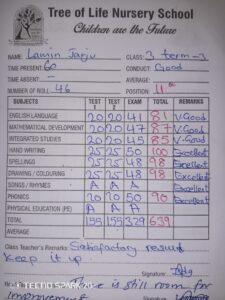 Tree of Life Nursery School
Children are the Future
NAME: Lamin Jarju CLASS: 3 term-3
TIME PRESENT: 60 CONDUCT: Good
TIME ABSENT: - AVERAGE:
NUMBER OF ROLL 46 POSITION: 11th
SUBJECTS TEST 1 TEST 2 EXAM TOTAL REMARKS
ENGLISH LANGUAGE 20 20 41 81 V.Good
MATHEMATICAL DEVELOPMENT 20 20 47 87 V.Good
INTEGRATED STUDIES 20 20 45 85 V.Good
HAND WRITING 25 25 50 100 Excellent
SPELLINGS 25 25 48 98 Excellent
DRAWING / COLOURING 25 25 48 98 Excellent
SONGS / RHYMES A A A
PHONICS 20 20 50 90 Excellent
PHYSICAL EDUCATION (PE) A A A
TOTAL 155 155 329 639
AVERAGE
Class Teacher's Remarks: Satisfactory result
Keep it up
Signature:
is still room for
improvement
TECNO SPARK 20